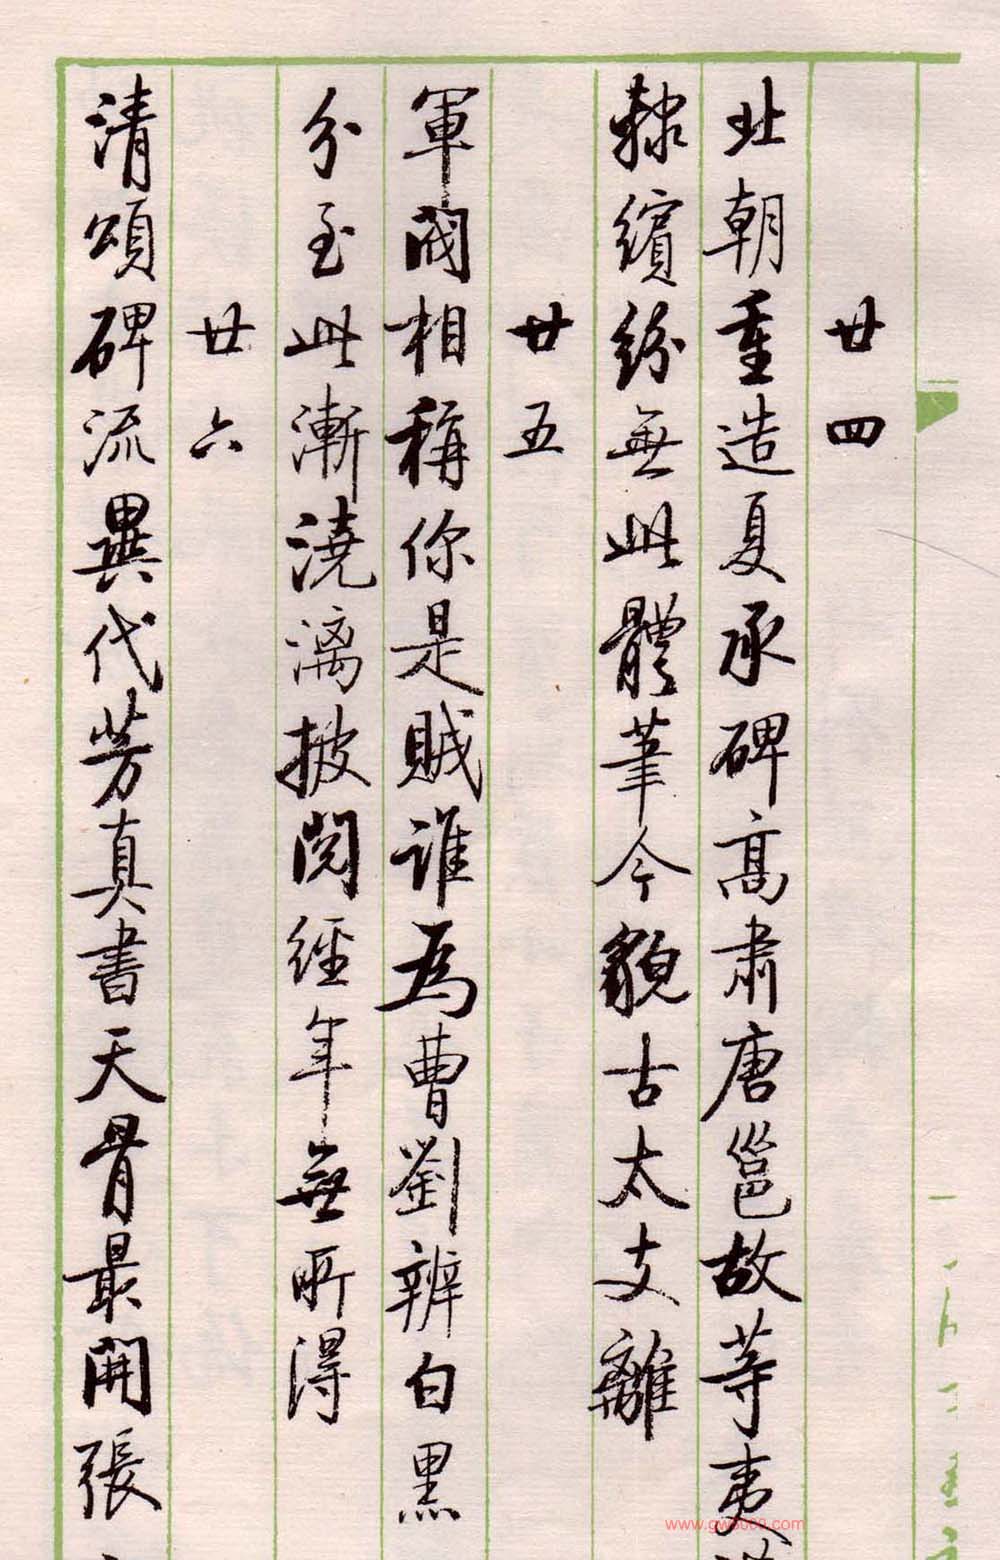 廿四
北朝重造夏承碑高肅唐邕故等夷
隸續紛無此體筆今貌古太支離
廿五
軍閥相稱你是賊誰為曹劉辨白黑
分至此漸澆漓披閱經年無所得
廿六
清頌碑流異代芳真書天骨最開張
www.gw8000.com